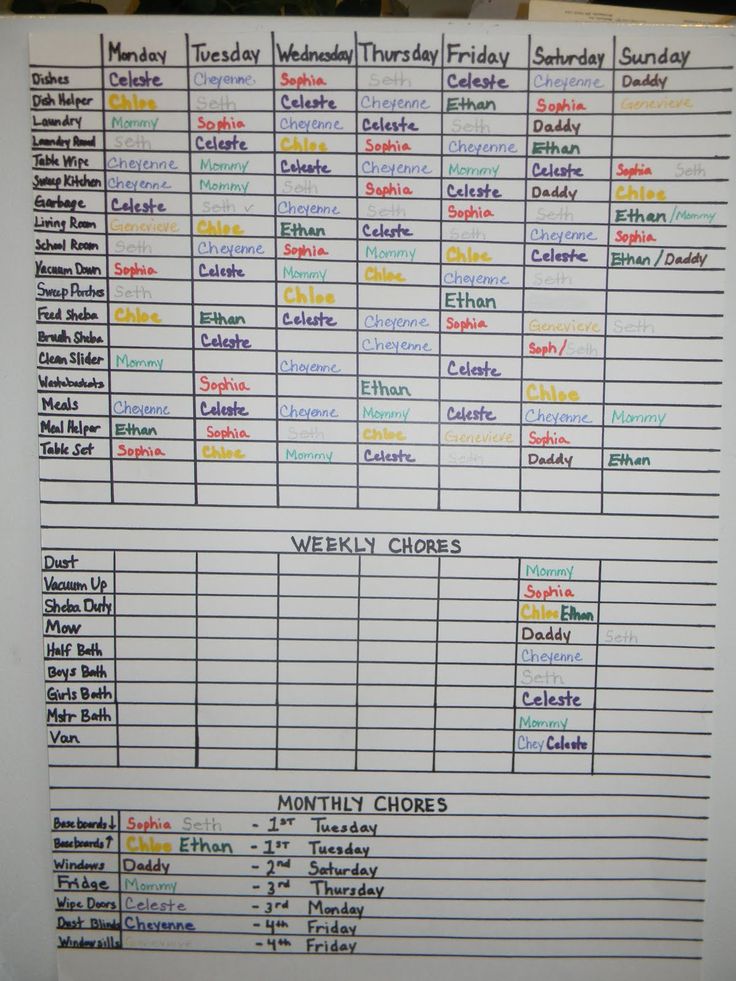 Monday Tuesday Wednesday Thursday Friday Saturday Sunday
Dishes Celeste Cheyenne Sophia Seth Celeste Cheyenne Daddy
Dish Helper Chloe Seth Celeste Cheyenne Ethan Sophia Genevieve
Laundry Mommy Sophia Cheyenne Celeste Seth Daddy
Laundry Room Seth Celeste Chloe Sophia Cheyenne Ethan
Table Wipe Cheyenne Mommy Celeste Cheyenne Mommy Celeste Sophia Seth
Sweep Kitchen Cheyenne Mommy Seth Sophia Celeste Daddy Chloe
Garbage Celeste Seth v Cheyenne Seth Sophia Seth Ethan/Mommy
Living Room Genevieve Chloe Ethan Celeste Seth Cheyenne Sophia
School Room Seth Cheyenne Sophia Mommy Chloe Celeste Ethan/Daddy
Vacuum Down Sophia Celeste Mommy Chloe Cheyenne Seth
Sweep Porches Seth Chloe Ethan
Feed Sheba Chloe Ethan Celeste Cheyenne Sophia Genevieve Seth
Brush Sheba Celeste Cheyenne Soph/Seth
Clean Slider Mommy Cheyenne Celeste
Wastebaskets Sophia Ethan Chloe
Meals Cheyenne Celeste Cheyenne Mommy Celeste Cheyenne Mommy
Meal Helper Ethan Sophia Seth Chloe Genevieve Sophia
Table Set Sophia Chloe Mommy Celeste Seth Daddy Ethan
WEEKLY CHORES
Dust Mommy
Vacuum Up Sophia
Sheba Duty Chloe Ethan
Mow Daddy Seth
Half Bath Cheyenne
Boys Bath Seth
Girls Bath Celeste
Mstr Bath Mommy
Van Chey Celeste
MONTHLY CHORES
Baseboards↓ Sophia Seth - 1ST Tuesday
Baseboards↑ Chloe Ethan - 1ST Tuesday
Windows Daddy - 2nd Saturday
Fridge Mommy - 3rd Thursday
Wipe Doors Celeste - 3rd Monday
Dust Blinds Cheyenne - 4th Friday
Windowsills Genevieve - 4th Friday